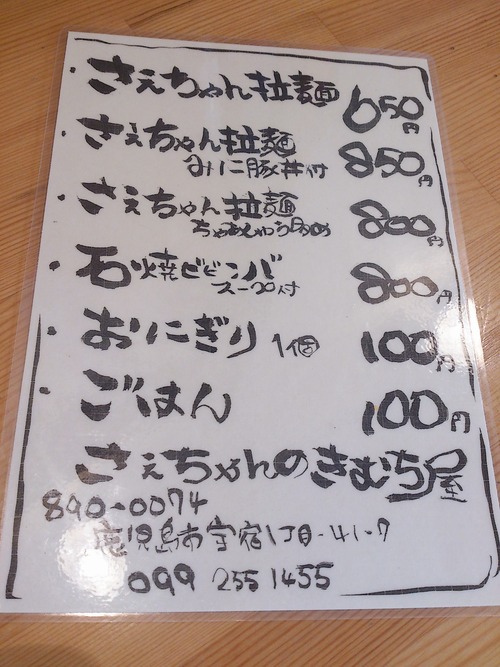 ・さえちゃん拉麺 650円
・さえちゃん拉麺 850円
みに豚丼付
・さえちゃん拉麺 800円
ちゃあしゅう多め
・石焼ビビンバ 800円
スープ付
・おにぎり 1個 100円
・ごはん 100円
さえちゃんのきむち屋
890-0074
鹿児島市宇宿1丁目-41-7
099 255 1455